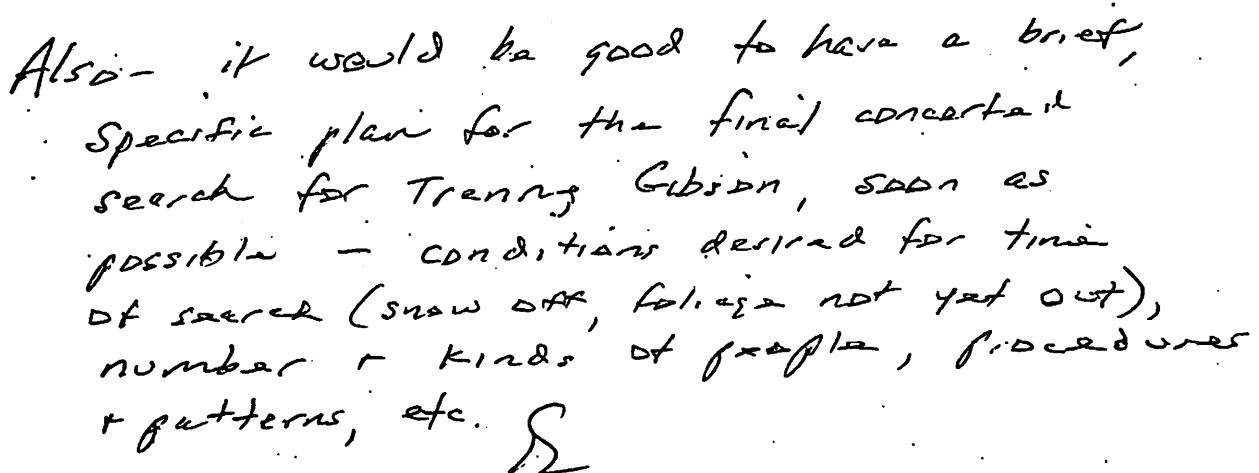 Also- it would be good to have a brief,
specific plan for the final concerted
search for Trenny Gibson, soon as
possible - conditions desired for time
of search (snow off, foliage not yet out),
number + kinds of people, procedures
+ patterns, etc.